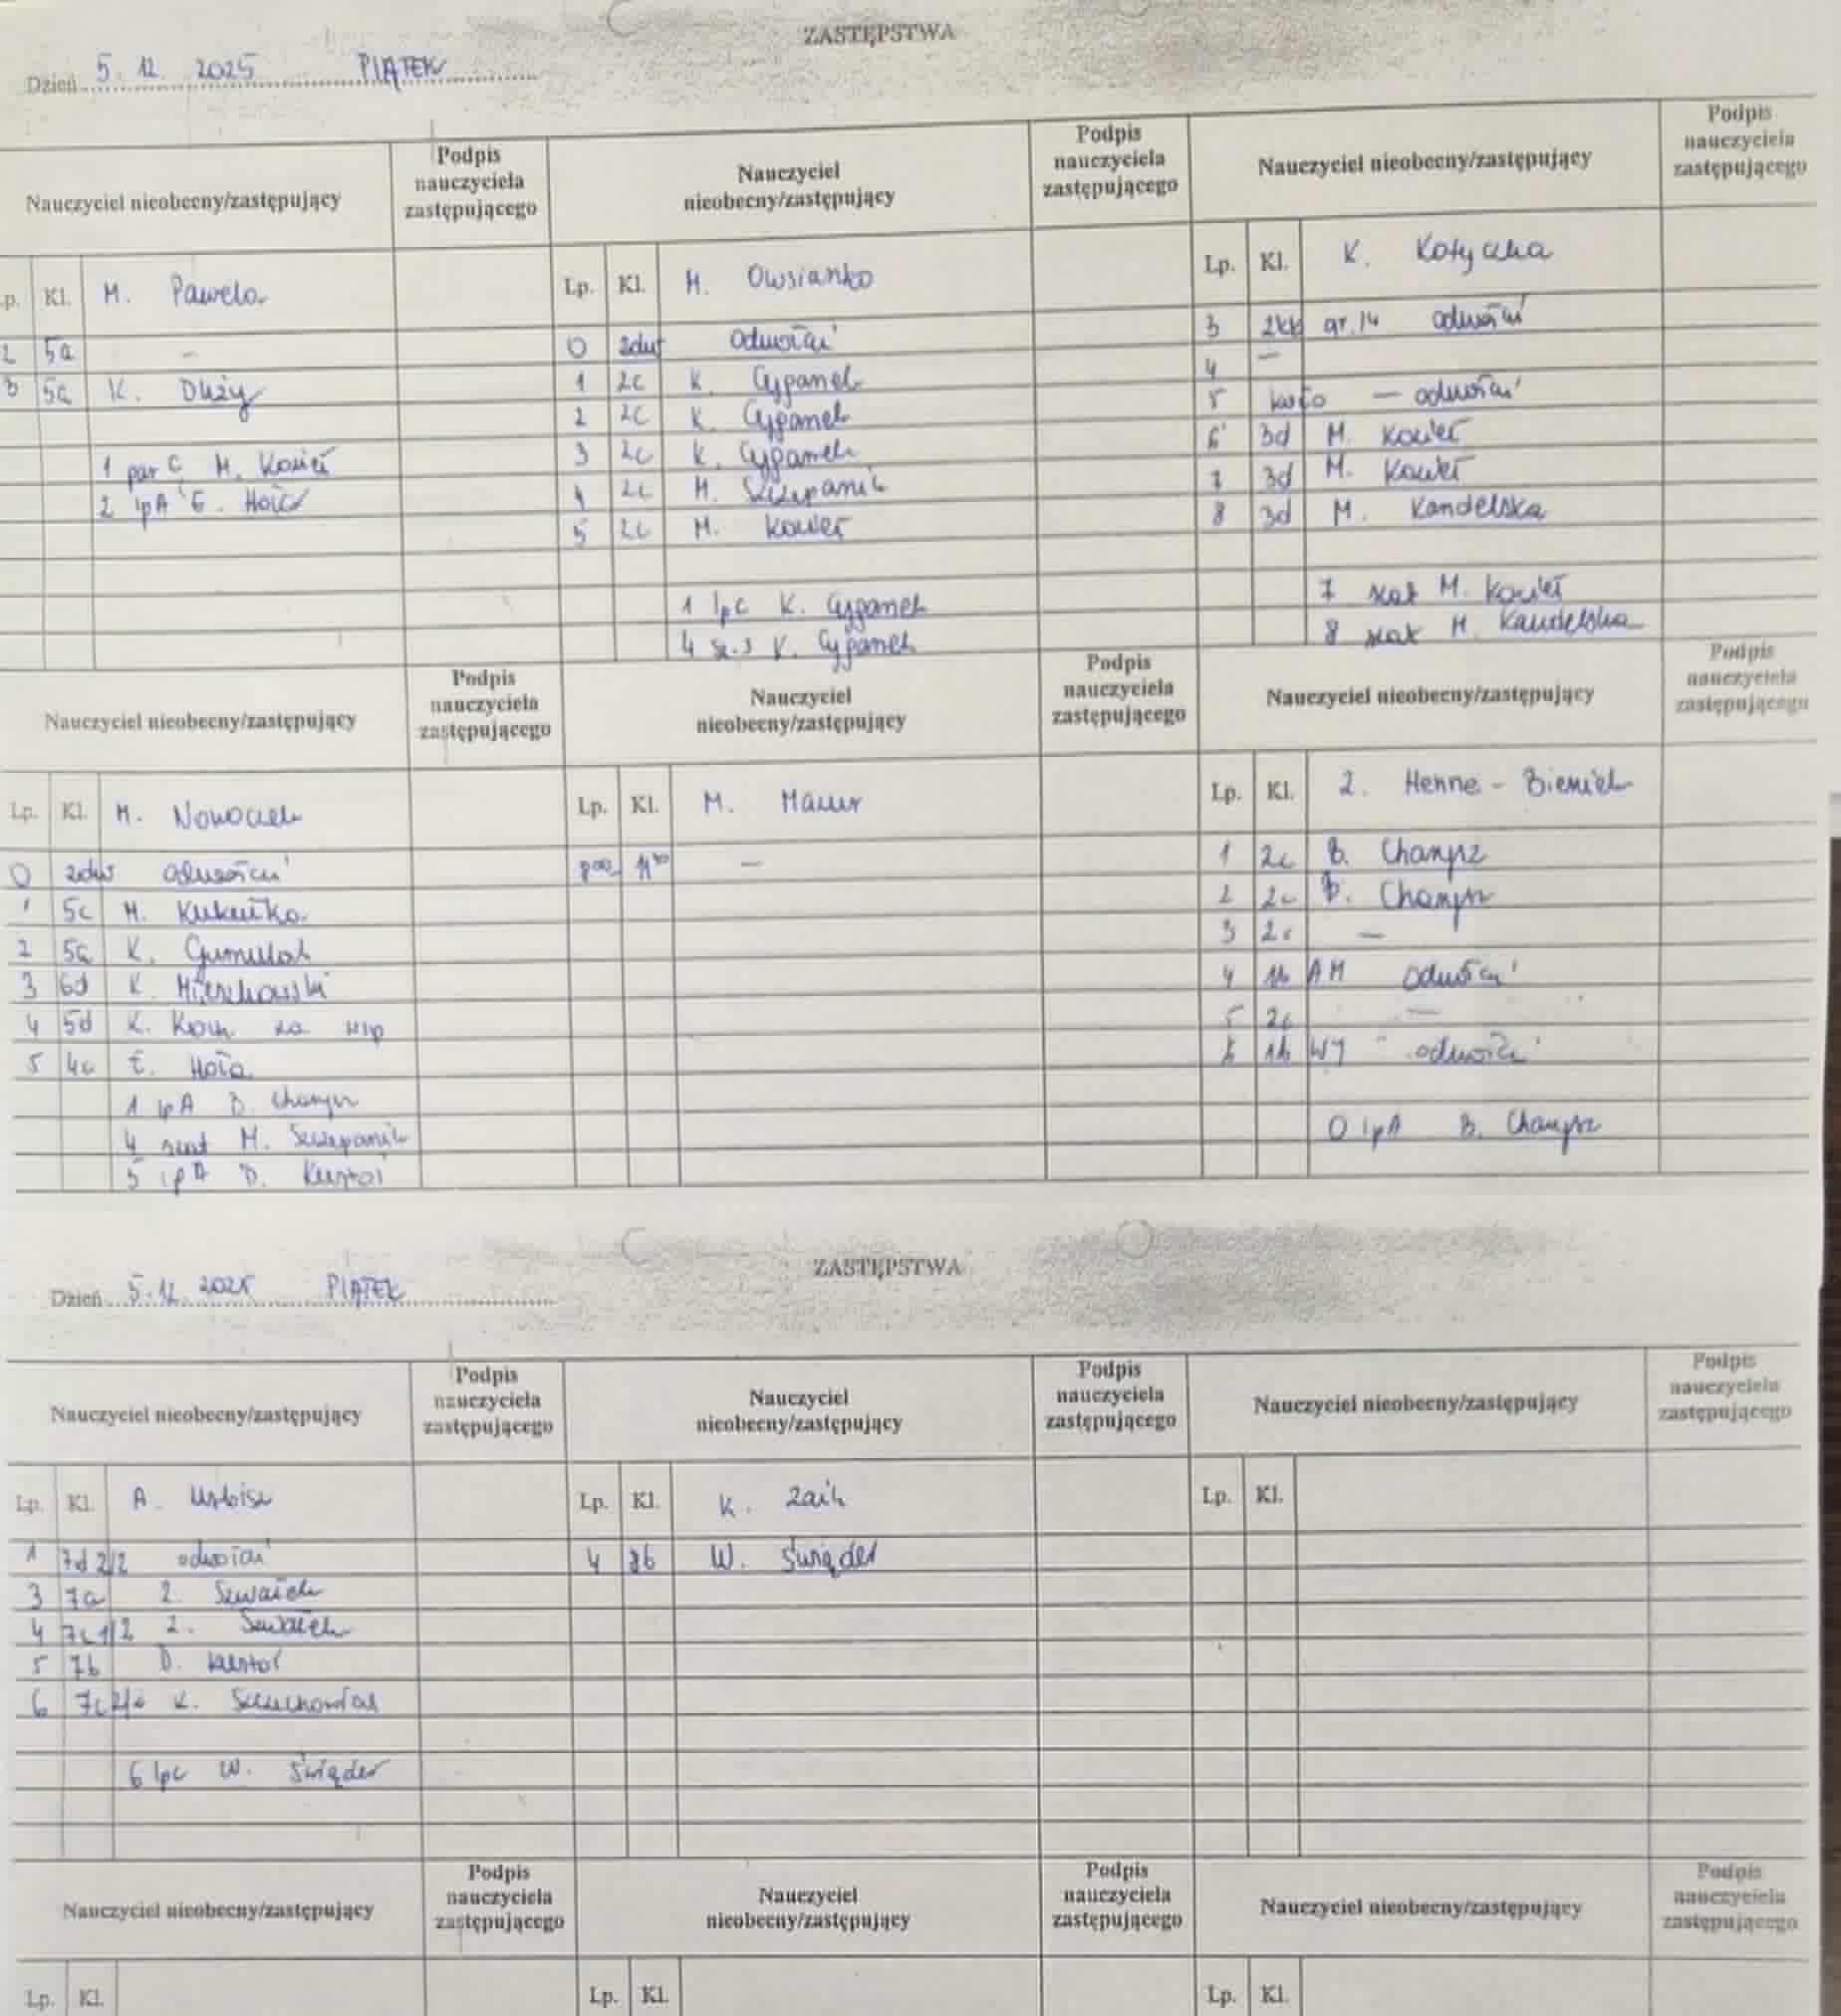 ZASTĘPSTWA
Dzień 5. 12. 2025 PIĄTEK
Nauczyciel nieobecny/zastępujący
Podpis nauczyciela zastępującego
Nauczyciel nieobecny/zastępujący
Podpis nauczyciela zastępującego
Nauczyciel nieobecny/zastępujący
Podpis nauczyciela zastępującego
Lp. Kl. M. Pawela
2 5a -
3 5a K. Duży
1 par C M. Kowień
2 lpA E. Hoła
Lp. Kl. M. Owsianko
0 odwołać
1 2c K. Cyganek
2 2c K. Cyganek
3 2c K. Cyganek
4 2c M. Szczepanik
5 2c M.
1 lpC K. Cyganek
4 K. Cyganek
Lp. Kl. K. Kotyczka
3 gr. odwołać
4 -
5 koło - odwołać
6 3d M.
7 3d M.
8 3d M. Kandelska
7 M.
8 M. Kandelska
Nauczyciel nieobecny/zastępujący
Podpis nauczyciela zastępującego
Nauczyciel nieobecny/zastępujący
Podpis nauczyciela zastępującego
Nauczyciel nieobecny/zastępujący
Podpis nauczyciela zastępującego
Lp. Kl. M. Nowaczek
0 odwołać
1 5c M. Kukułka
2 5a K.
3 6d K.
4 5d K.
5 4c E. Hoła
1 lpA B. Chamysz
4 M. Szczepanik
5 D. Kustoś
Lp. Kl. M. Mazur
800 11 -
Lp. Kl. Z. Henne - Bieniek
1 2c B. Chamysz
2 2c B. Chamysz
3 2c -
4 AM odwołać
5 2c -
6 odwołać
0 lpA B. Chamysz
ZASTĘPSTWA
Dzień 5.12. 2025 PIĄTEK
Nauczyciel nieobecny/zastępujący
Podpis nauczyciela zastępującego
Nauczyciel nieobecny/zastępujący
Podpis nauczyciela zastępującego
Nauczyciel nieobecny/zastępujący
Podpis nauczyciela zastępującego
Lp. Kl. A. Urbisz
1 7d 2/2 odwołać
3 7a Z. Szwałek
4 7c 1/2 Z. Szwałek
5 7b D. Kustoś
6 7c K.
6 lpC W. Świąder
Lp. Kl. K. Zaik
4 W. Świąder
Lp. Kl.
Nauczyciel nieobecny/zastępujący
Podpis nauczyciela zastępującego
Nauczyciel nieobecny/zastępujący
Podpis nauczyciela zastępującego
Nauczyciel nieobecny/zastępujący
Podpis nauczyciela zastępującego
Lp. Kl.
Lp. Kl.
Lp. Kl.